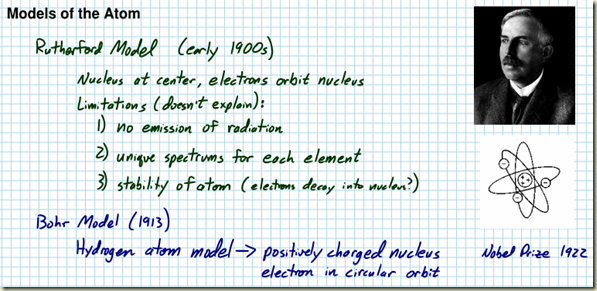 Models of the Atom
Rutherford Model (early 1900s)
Nucleus at center, electrons orbit nucleus
Limitations (doesn't explain):
1) no emission of radiation
2) unique spectrums for each element
3) stability of atom (electrons decay into nucleus?)
Bohr Model (1913)
Hydrogen atom model → positively charged nucleus
electron in circular orbit
Nobel Prize 1922